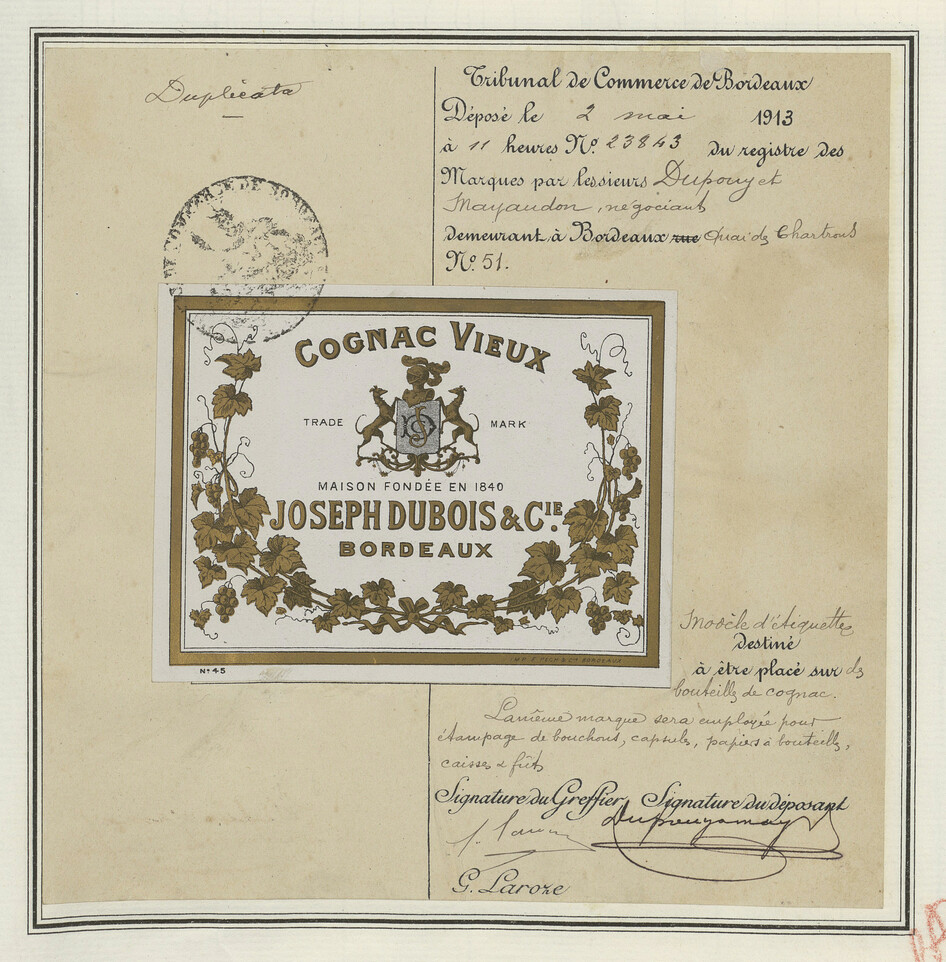 Duplicata
Tribunal de Commerce de Bordeaux
Déposé le 2 mai 1913
à 11 heures No. 23843 du registre des
Marques par Messieurs Dupouy et
Mayaudon, négociants
demeurant à Bordeaux rue Quai des Chartrons
No. 51.
DE COMMERCE DE BORDEAUX
COGNAC VIEUX
TRADE MARK
MAISON FONDÉE EN 1840
JOSEPH DUBOIS & CIE.
BORDEAUX
No 45
BORDEAUX
Modèle d'étiquettes
destiné
à être placé sur des
bouteilles de cognac.
La même marque sera employée pour
étampage de bouchons, capsules, papiers à bouteilles,
caisses & fûts
Signature du Greffier Signature du déposant
Dupouy & may
G. Laroze